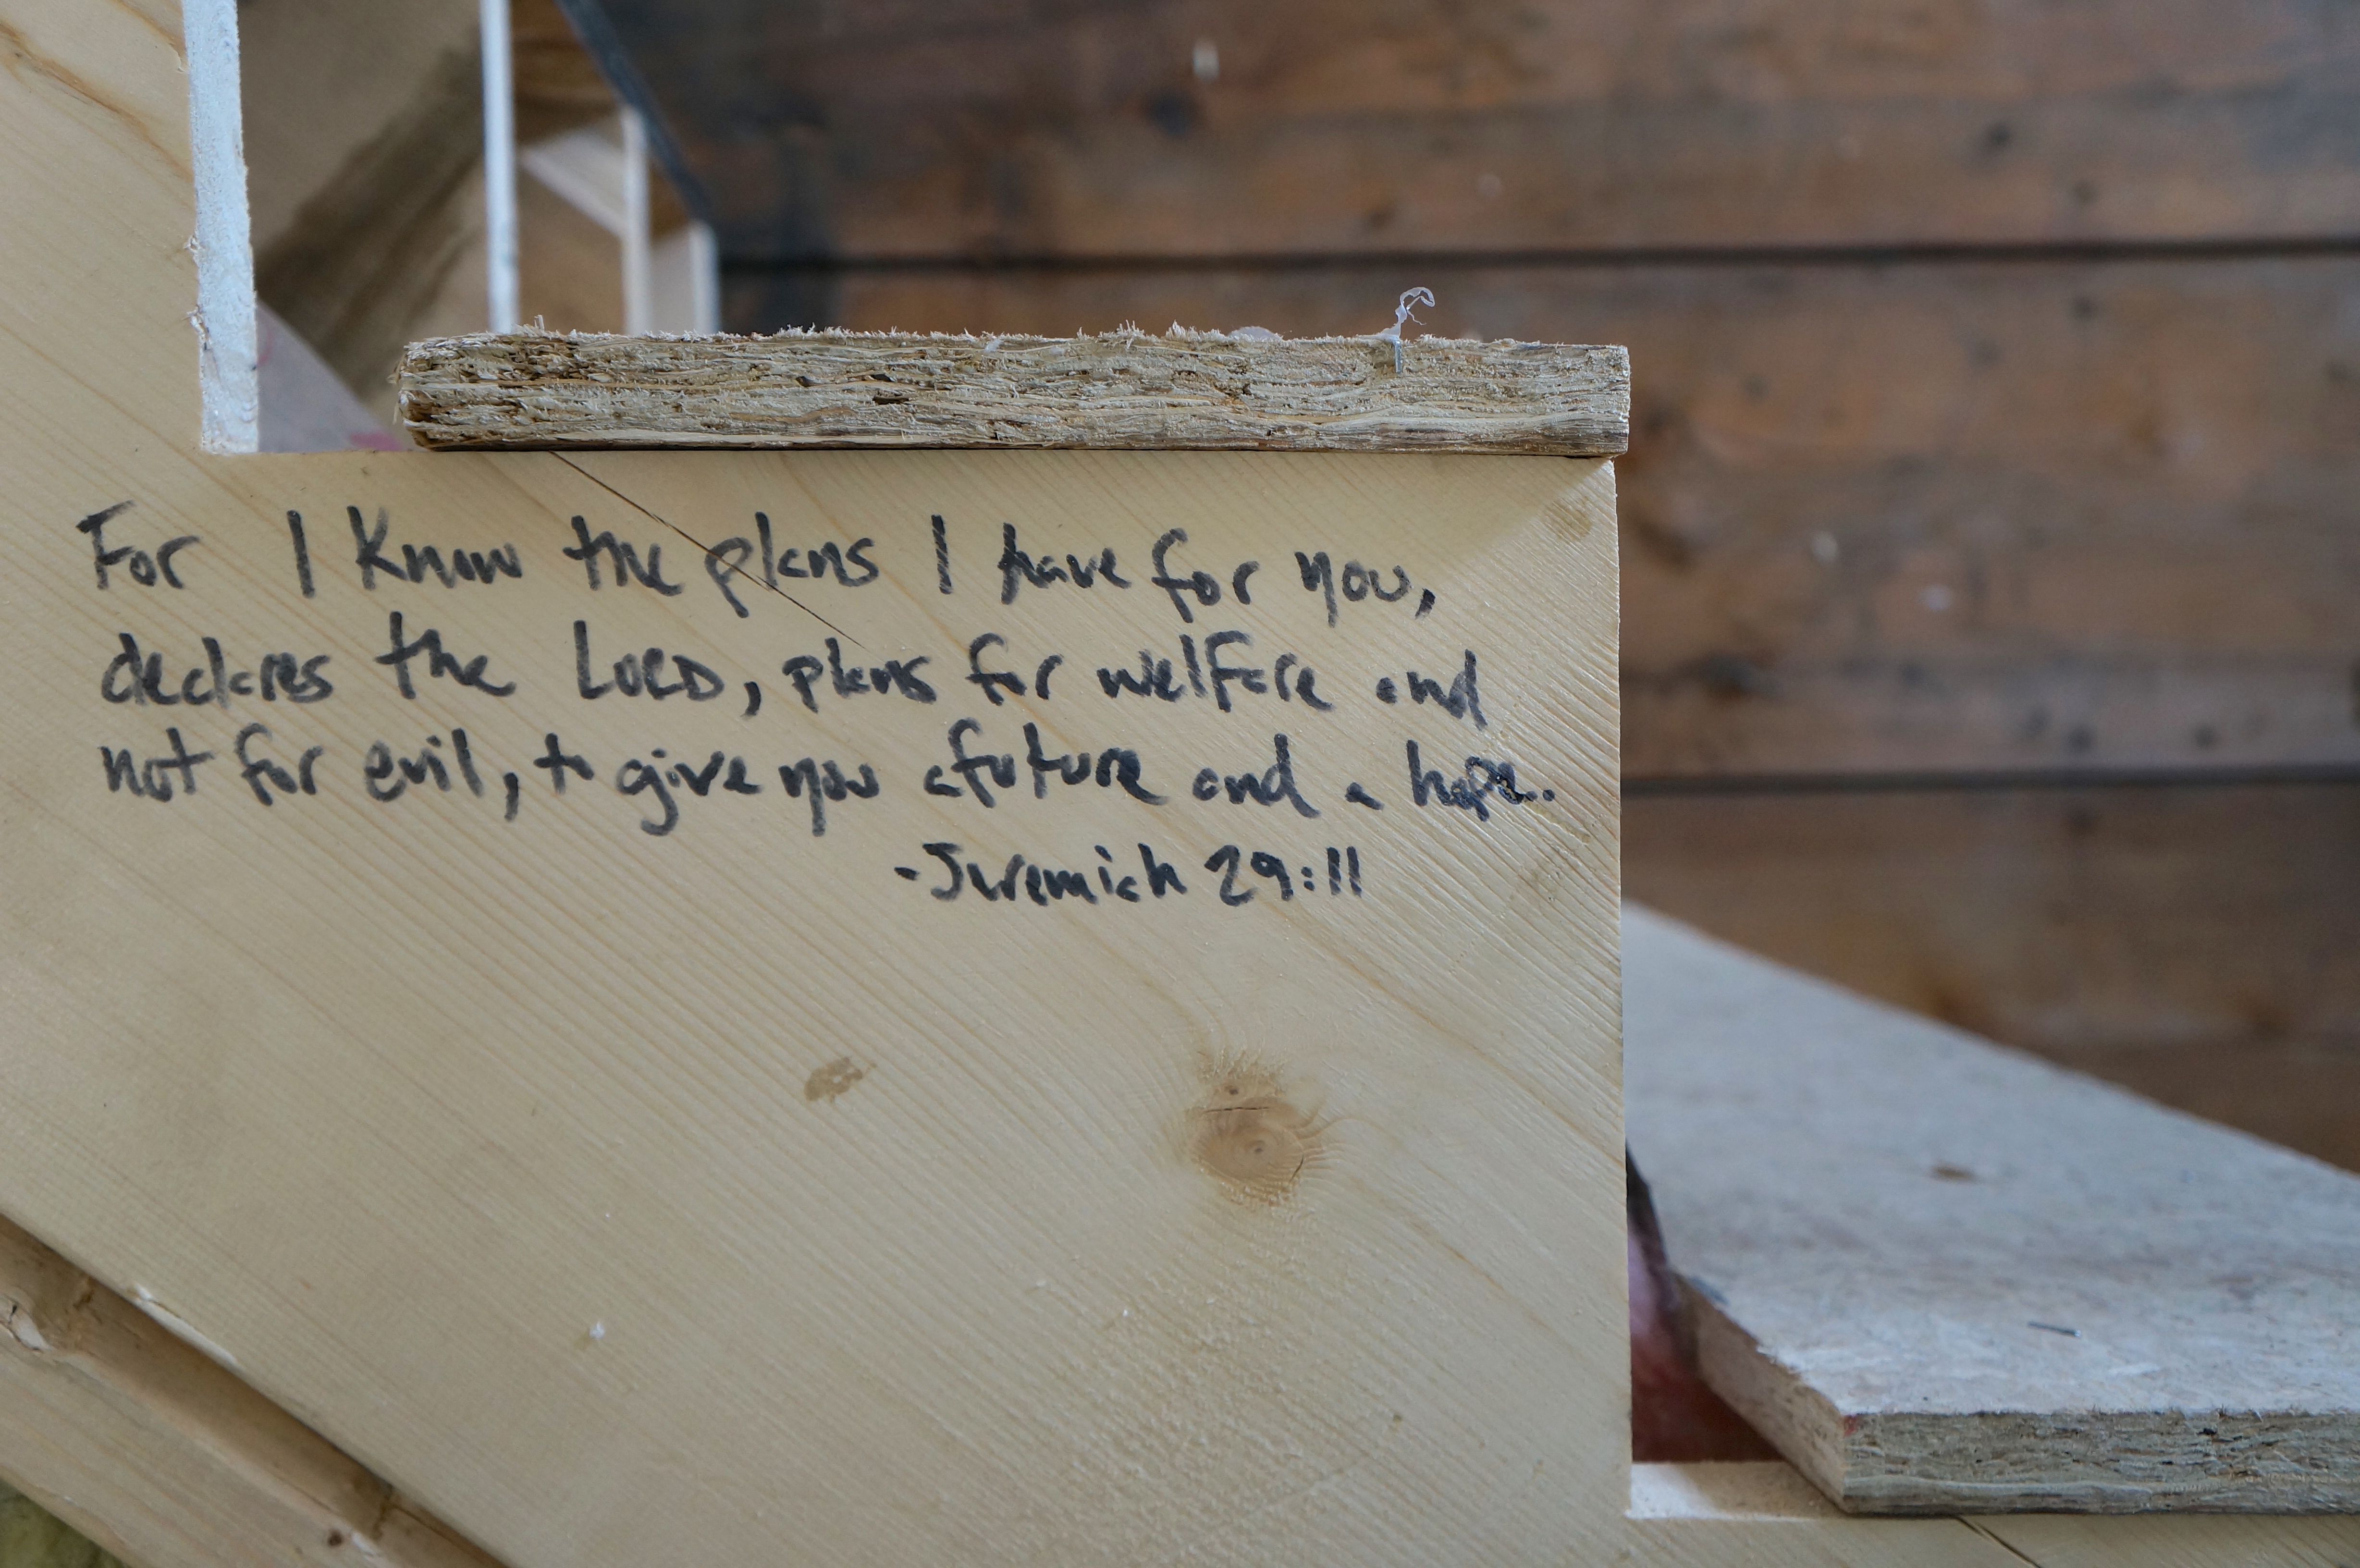 For I Know the plans I have for you,
declares the LORD, plans for welfare and
not for evil, to give you a future and a hope.
-Jeremiah 29:11